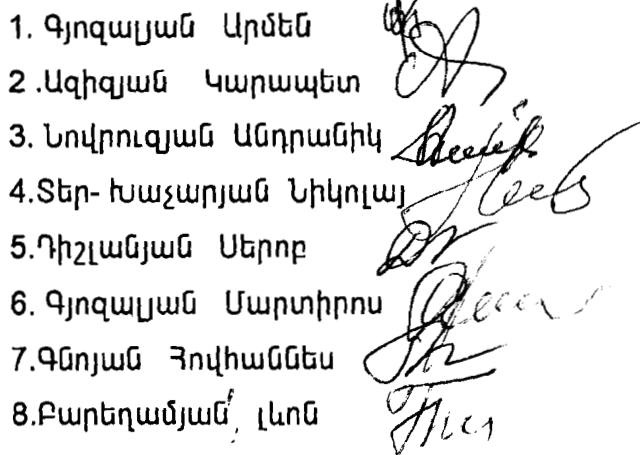 1. Գյոզալյան Արմեն
2 .Ազիզյան Կարապետ
3. Նովրուզյան Անդրանիկ
4.Տեր- Խաչարյան Նիկոլայ
5.Դիշլանյան Սերոբ
6. Գյոզալյան Մարտիրոս
7.Գնոյան Հովհաննես
8.Բարեղամյան լևոն